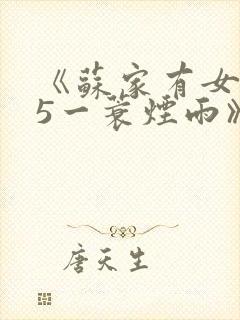 《蘇家有女
5一蓑煙雨》
唐天生